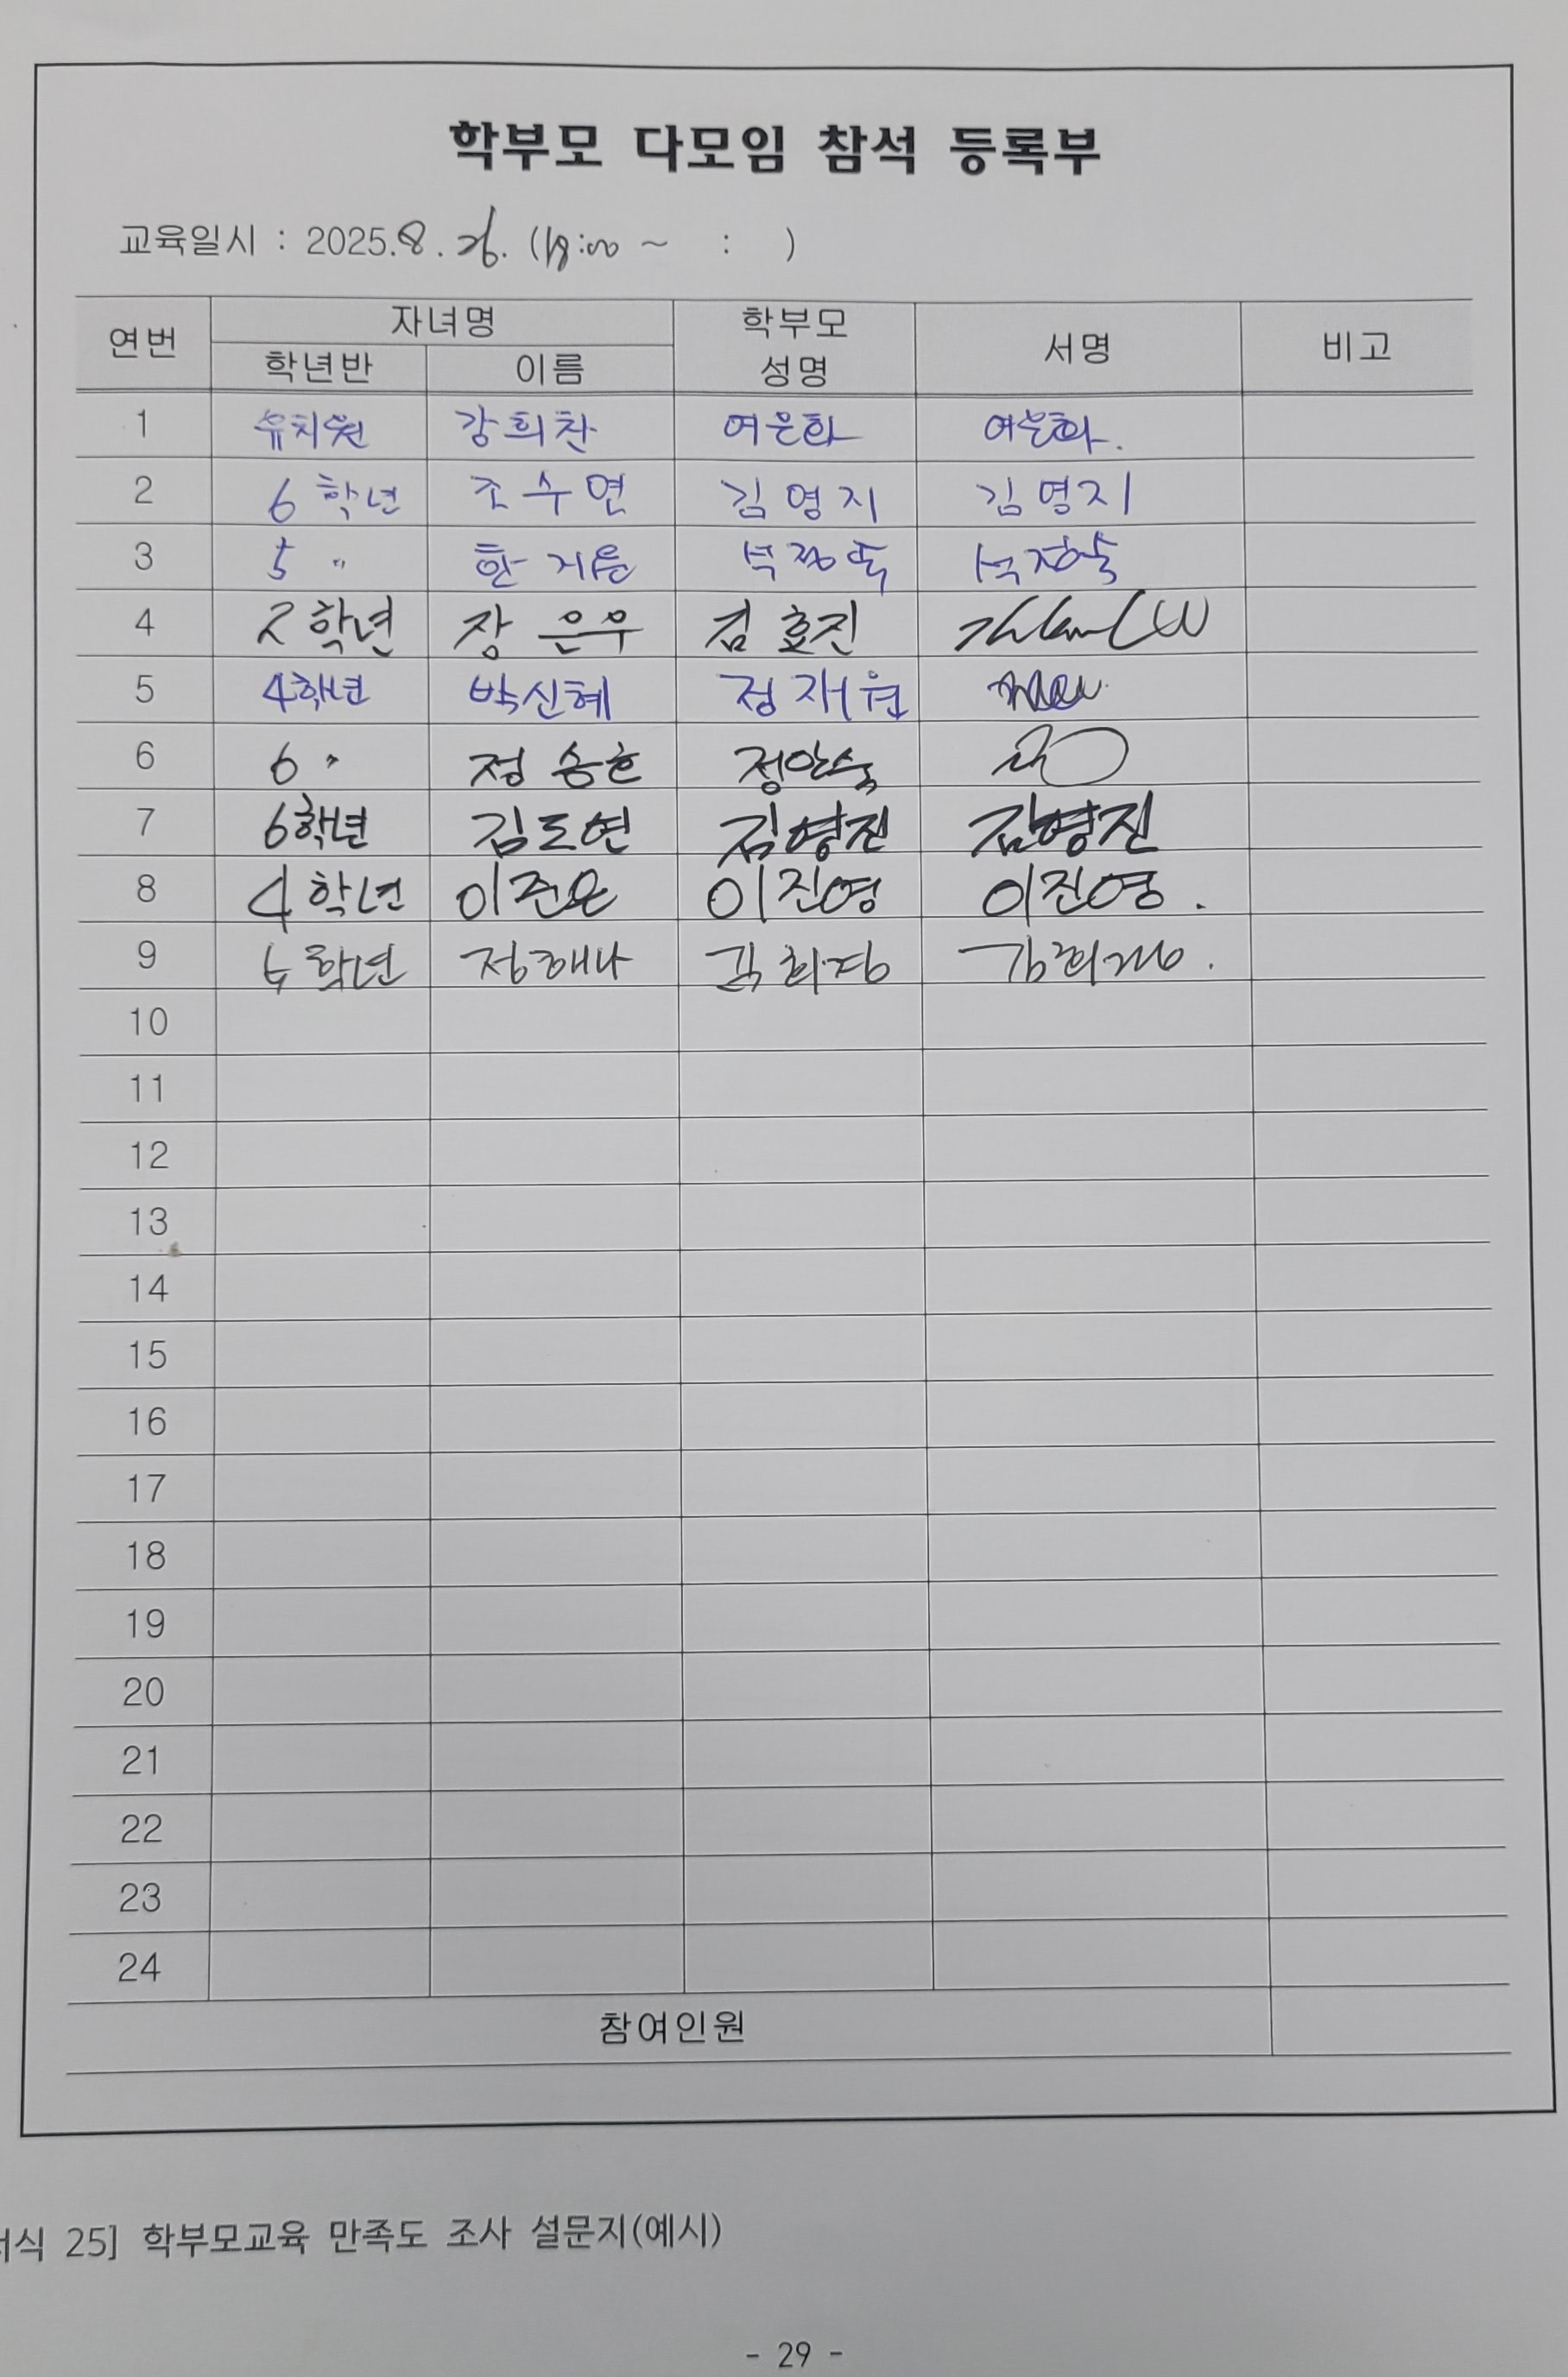 학부모 다모임 참석 등록부
교육일시 : 2025.8.26. (18:00 ~ : )
연번 자녀명 학부모 성명 서명 비고
학년반 이름
1 유치원 강희찬 여은화 여은화.
2 6학년 조수연 김영지 김영지
3 5 〃 한
4 2학년 장은우 김효진
5 4학년 박신혜 정재원
6 6 〃 정승호 정안숙
7 6학년 김도연 김영진 김영진
8 4학년 이준은 이진영 이진영.
9 학년 정해나 김희정 김희정.
10
11
12
13
14
15
16
17
18
19
20
21
22
23
24
참여인원
서식 25] 학부모교육 만족도 조사 설문지(예시)
- 29 -